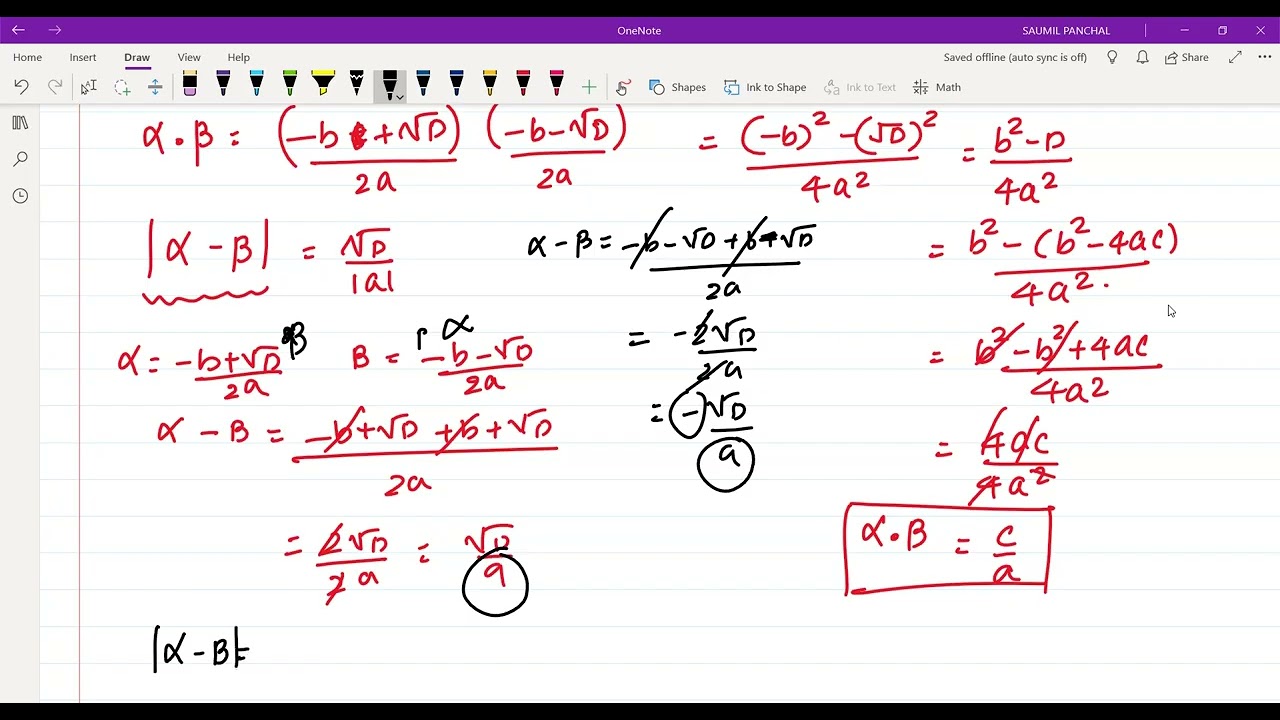 SAUMIL PANCHAL
OneNote
Home Insert Draw View Help
Saved offline (auto sync is off) Share
Shapes Ink to Shape Ink to Text Math
α · β = (-b + √D)/2a (-b - √D)/2a = ((-b)² - (√D)²)/4a² = (b² - D)/4a²
|α - β| = √D/|a|
α - β = (-b - √D + b - √D)/2a
= (b² - (b² - 4ac))/4a²
α = (-b + √D)/2a β
B = (-b - √D)/2a α
= -2√D/2a
= (b² - b² + 4ac)/4a²
α - B = (-b + √D + b + √D)/2a
= -√D/a
= 4ac/4a²
= 2√D/2a = √D/a
α · B = c/a
|α - B| =